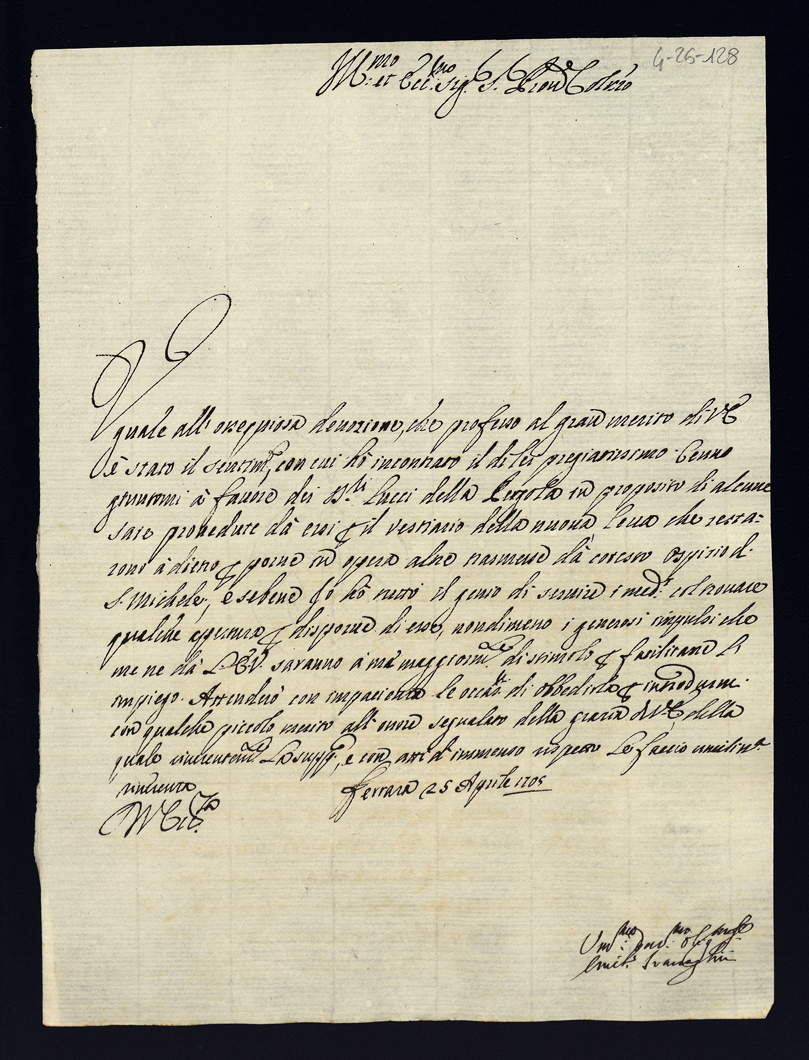 4-26-128
Ill.mo et Ecc.mo Sig. S. Pron Col.mo
V
guale all'ossequiosa devozione, che professo al gran merito di VE
è stato il sentim.to, con cui hò incontrato il di lei pregiatissimo Cenno
à favore dei SS.ri Lucci della Pergola in proposito di alcune
procedute dà essi il vestiario della nuova che resta-
rono à dietro porne in opera altre trasmesse dà cotesto Ospizio di
S. Michele, e sebene Io hò tutto il genio di servire i med.i col trovare
qualche apertura disporne di esse, nondimeno i generosi impulsi che
me ne dà L'E.V. saranno à me maggiorm.te di stimolo facilitare l'
impiego. Attenderò con impacienza le occas.i di obbedirla introdurmi
con qualche piccolo merito all'onore segnalato della grazia di VE, della
quale riverentem.te La supp.co, e con atti d'immenso rispetto Le faccio umilissi.a
riverenza
Ferrara 25 Aprile 1705
VV Ecc.za
Um.mo Dev.mo Obl.mo